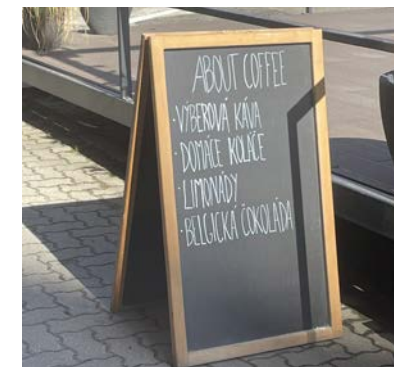 ABOUT COFFEE
· VÝBEROVÁ KÁVA
· DOMÁCE KOLÁČE
· LIMONÁDY
· BELGICKÁ ČOKOLÁDA